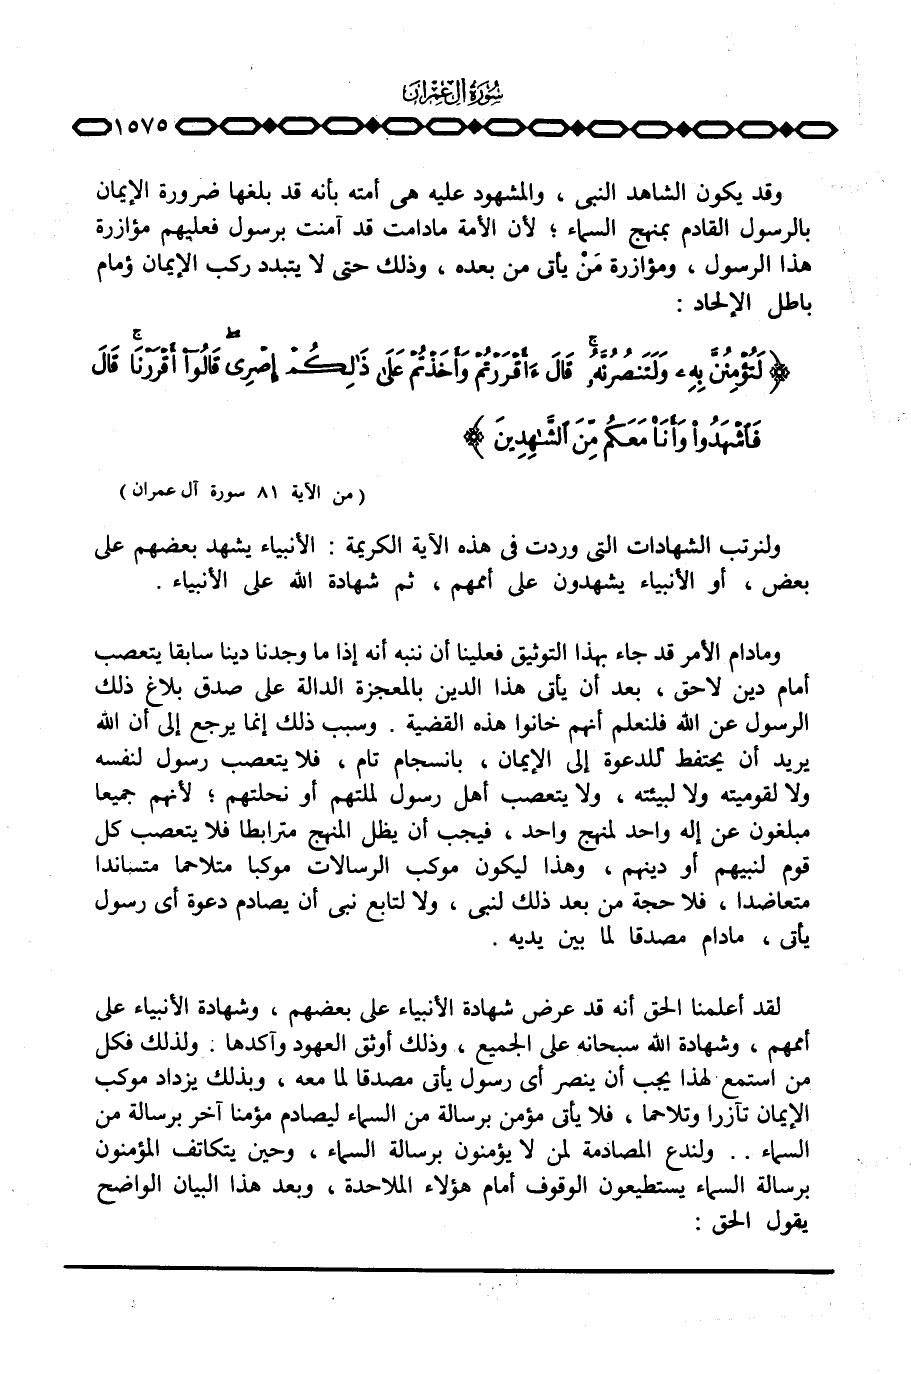 سُورَةُ آلِ عِمْرَانَ
١٥٧٥
وقد يكون الشاهد النبى ، والمشهود عليه هى أمته بأنه قد بلغها ضرورة الإيمان
بالرسول القادم بمنهج السماء ؛ لأن الأمة مادامت قد آمنت برسول فعليهم مؤازرة
هذا الرسول ، ومؤازرة مَنْ يأتى من بعده ، وذلك حتى لا يتبدد ركب الإيمان ؤمام
باطل الإلحاد :
﴿ لَتُؤْمِنُنَّ بِهِۦ وَلَتَنصُرُنَّهُۥ ۚ قَالَ ءَأَقْرَرْتُمْ وَأَخَذْتُمْ عَلَىٰ ذَٰلِكُمْ إِصْرِى ۖ قَالُوٓا۟ أَقْرَرْنَا ۚ قَالَ
فَٱشْهَدُوا۟ وَأَنَا۠ مَعَكُم مِّنَ ٱلشَّـٰهِدِينَ ﴾
( من الآية ٨١ سورة آل عمران )
ولنرتب الشهادات التى وردت فى هذه الآية الكريمة : الأنبياء يشهد بعضهم على
بعض ، أو الأنبياء يشهدون على أممهم ، ثم شهادة الله على الأنبياء .
ومادام الأمر قد جاء بهذا التوثيق فعلينا أن ننبه أنه إذا ما وجدنا دينا سابقا يتعصب
أمام دين لاحق ، بعد أن يأتى هذا الدين بالمعجزة الدالة على صدق بلاغ ذلك
الرسول عن الله فلنعلم أنهم خانوا هذه القضية . وسبب ذلك إنما يرجع إلى أن الله
يريد أن يحتفط للدعوة إلى الإيمان ، بانسجام تام ، فلا يتعصب رسول لنفسه
ولا لقوميته ولا لبيئته ، ولا يتعصب أهل رسول لملتهم أو نحلتهم ؛ لأنهم جميعا
مبلغون عن إله واحد لمنهج واحد ، فيجب أن يظل المنهج مترابطا فلا يتعصب كل
قوم لنبيهم أو دينهم ، وهذا ليكون موكب الرسالات موكبا متلاحما متساندا
متعاضدا ، فلا حجة من بعد ذلك لنبى ، ولا لتابع نبى أن يصادم دعوة أى رسول
يأتى ، مادام مصدقا لما بين يديه .
لقد أعلمنا الحق أنه قد عرض شهادة الأنبياء على بعضهم ، وشهادة الأنبياء على
أممهم ، وشهادة الله سبحانه على الجميع ، وذلك أوثق العهود وآكدها . ولذلك فكل
من استمع لهذا يجب أن ينصر أى رسول يأتى مصدقا لما معه ، وبذلك يزداد موكب
الإيمان تآزرا وتلاحما ، فلا يأتى مؤمن برسالة من السماء ليصادم مؤمنا آخر برسالة من
السماء .. ولندع المصادمة لمن لا يؤمنون برسالة السماء ، وحين يتكاتف المؤمنون
برسالة السماء يستطيعون الوقوف أمام هؤلاء الملاحدة ، وبعد هذا البيان الواضح
يقول الحق :